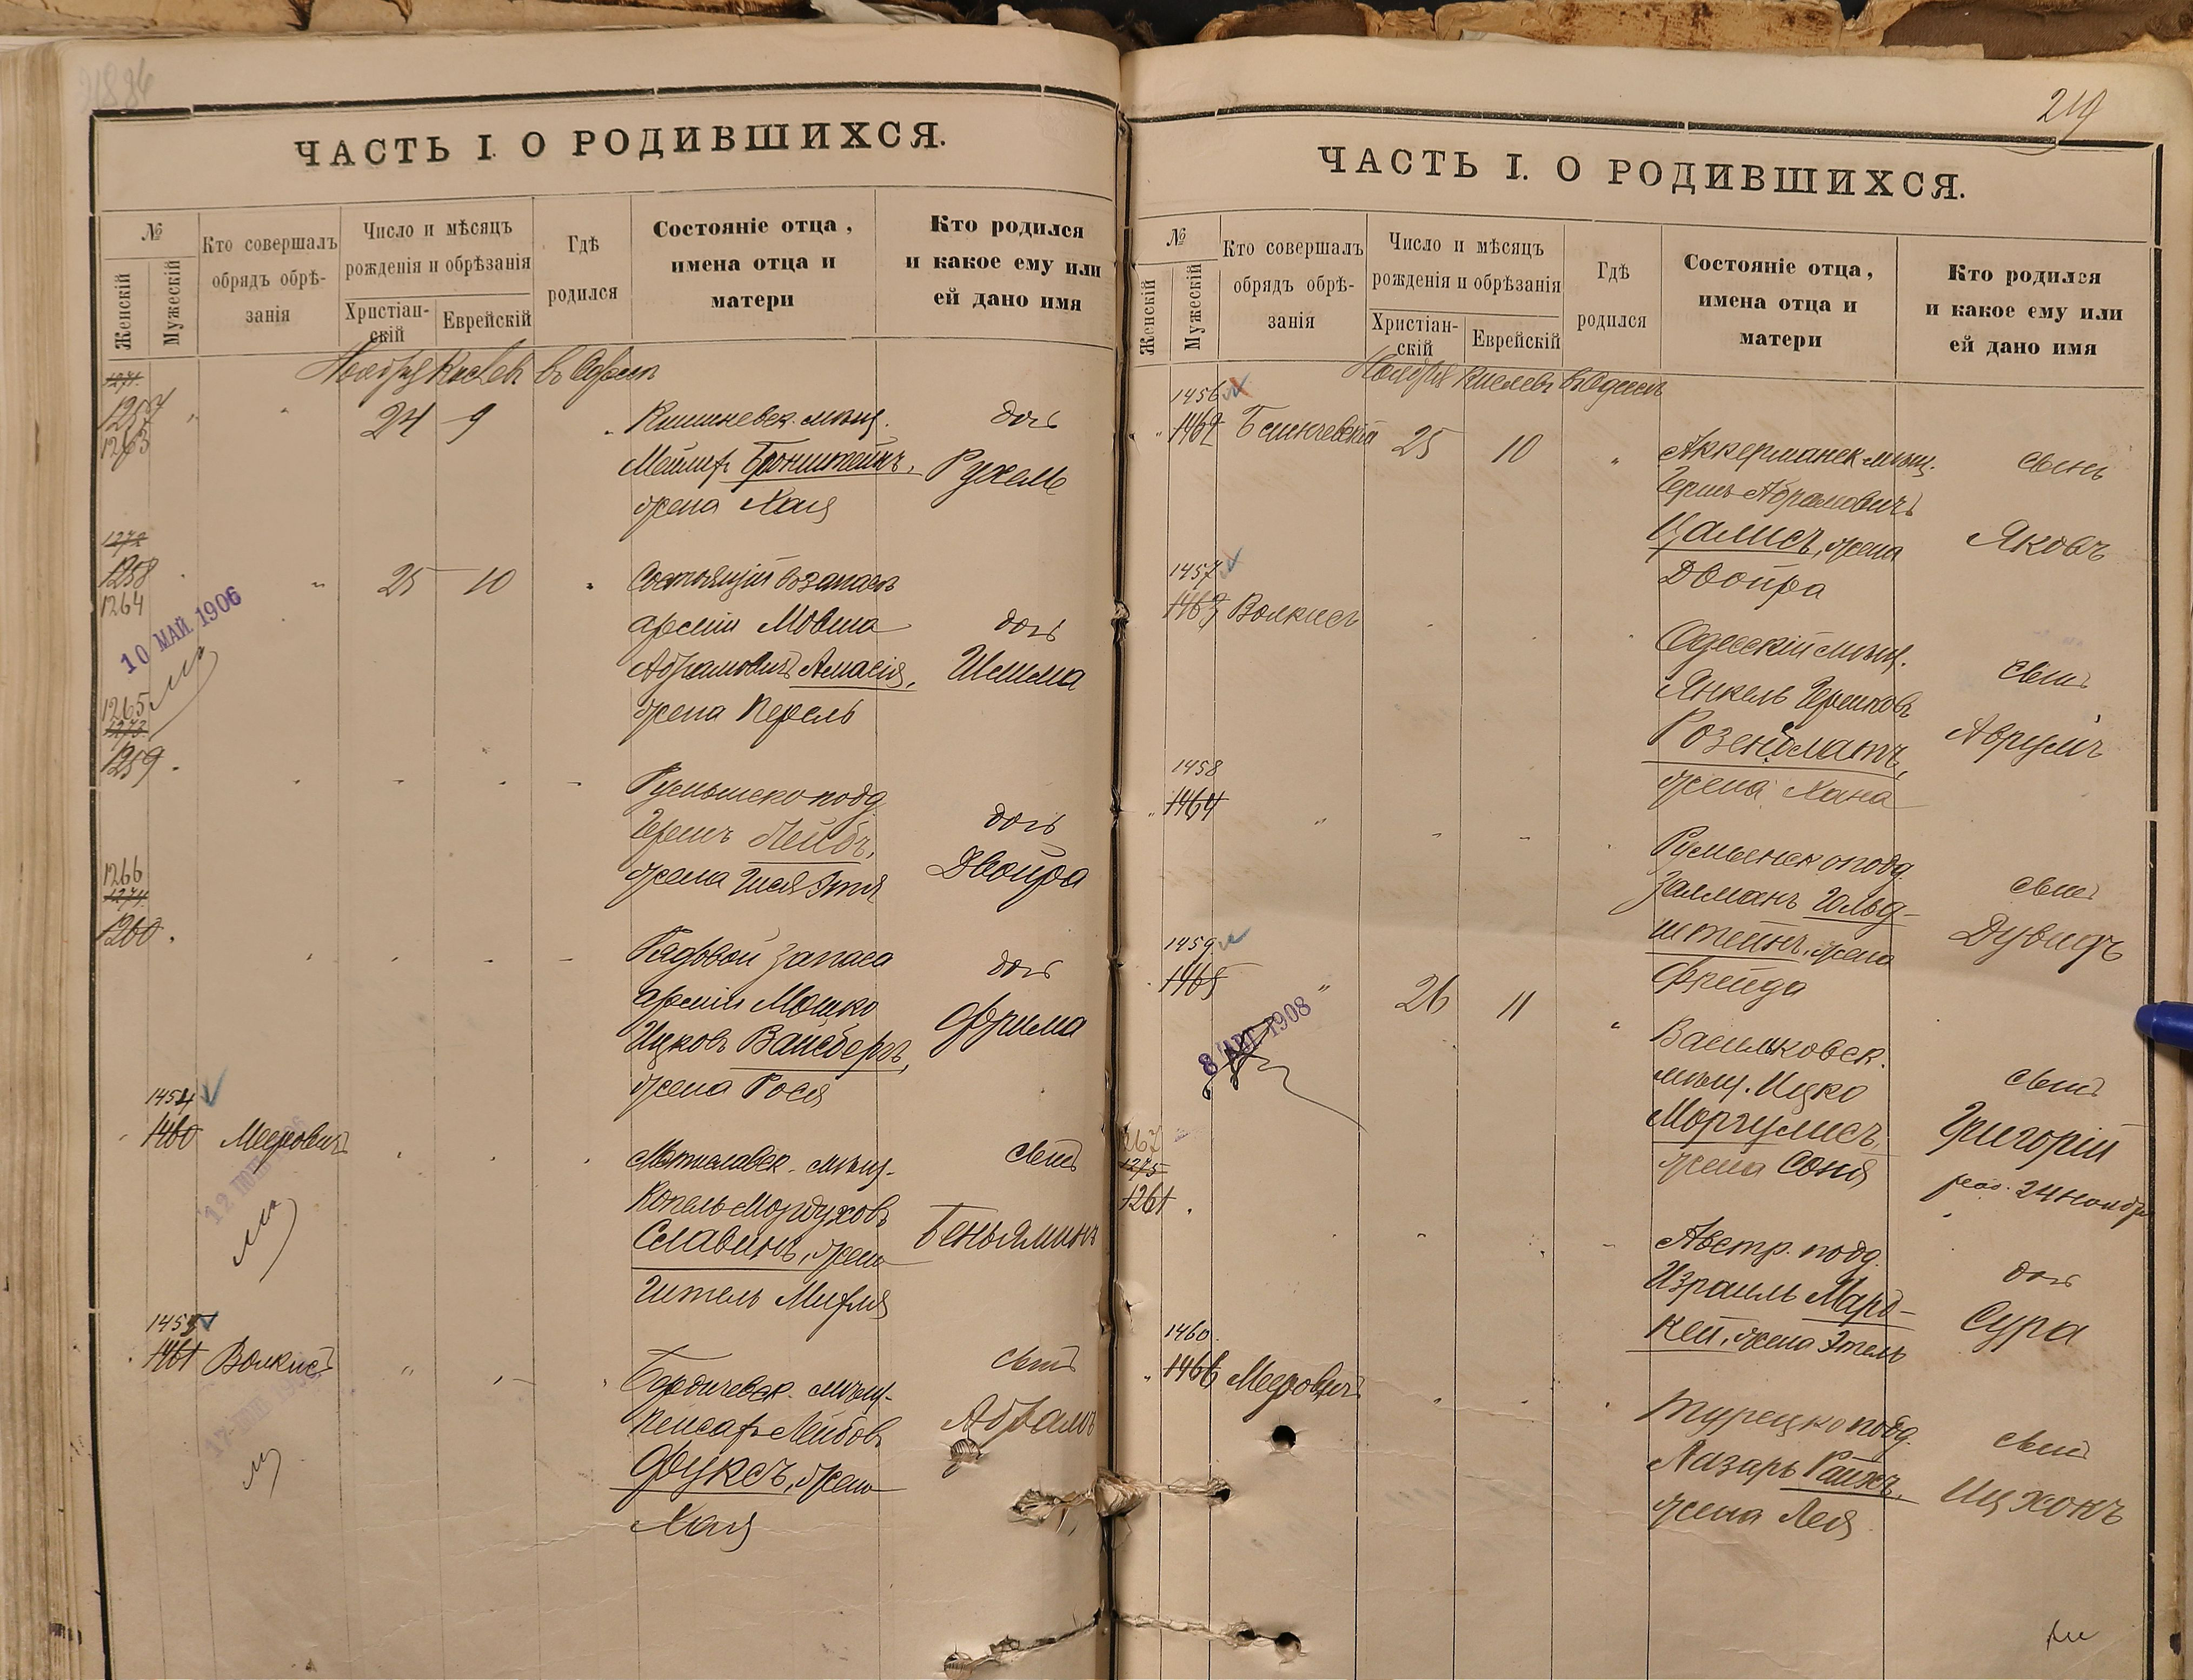 ЧАСТЬ I. О РОДИВШИХСЯ.
№
Женскій
Мужескій
Кто совершалъ
обрядъ обрѣ-
занія
Число и мѣсяцъ
рожденія и обрѣзанія
Христіан-
скій
Еврейскій
Гдѣ
родился
Состояніе отца,
имена отца и
матери
Кто родился
и какое ему или
ей дано имя
Ноября Кислевъ въ Одессѣ
1271
1257
1263
24 9
Кишиневск. мѣщ.
Мейлихъ Бронштейнъ,
жена Хая
дочь
Рухель
1272
1258
1264
10 МАЙ 1906
25 10
Состоящій въ запасѣ
арміи Мовша
Абрамовичъ Амасія,
жена Перель
дочь
Шейма
1265
1273
1259
Румынско подд.
Гершъ Лейбъ,
жена Шея Этя
дочь
Двойра
1266
1274
1260
Рядовой запаса
арміи Мошко
Ицковъ Вайсбергъ,
жена Рося
дочь
Фрима
1454
1460 Мееровичъ
Мстиславск. мѣщ.
Копель Мордуховъ
Славинъ, жена
Гитель Мирля
сынъ
Беньяминъ
1455
1461 Волкисъ
Бердичевск. мѣщ.
Пейсахъ Лейбовъ
Фуксъ, жена
Хая
сынъ
Абрамъ
219
ЧАСТЬ I. О РОДИВШИХСЯ.
№
Женскій
Мужескій
Кто совершалъ
обрядъ обрѣ-
занія
Число и мѣсяцъ
рожденія и обрѣзанія
Христіан-
скій
Еврейскій
Гдѣ
родился
Состояніе отца,
имена отца и
матери
Кто родился
и какое ему или
ей дано имя
Ноября Кислевъ въ Одессѣ
1456
1462
25 10
Аккерманск мѣщ.
Гершъ Абрамовичъ
Цалисъ, жена
Двойра
сынъ
Яковъ
1457
1463 Волкисъ
Одесскій мѣщ.
Янкель Гершковъ
Розенблатъ,
жена Хана
сынъ
Аврумъ
1458
1464
Румынск о подд
Залманъ Гольд-
штейнъ, жена
Фрейда
сынъ
Дувидъ
1459
1465
8 АВГ 1908
26 11
Васильковск.
мѣщ. Ицко
Моргулисъ,
жена Соня
сынъ
Григорій
род. 24 ноября
1267
1275
1261
Австр. подд.
Израиль Мард-
кей, жена Этель
дочь
Сура
1460
1466 Мееровичъ
Турецко подд.
Лазарь Раихъ,
жена Лея
сынъ
Ицхокъ